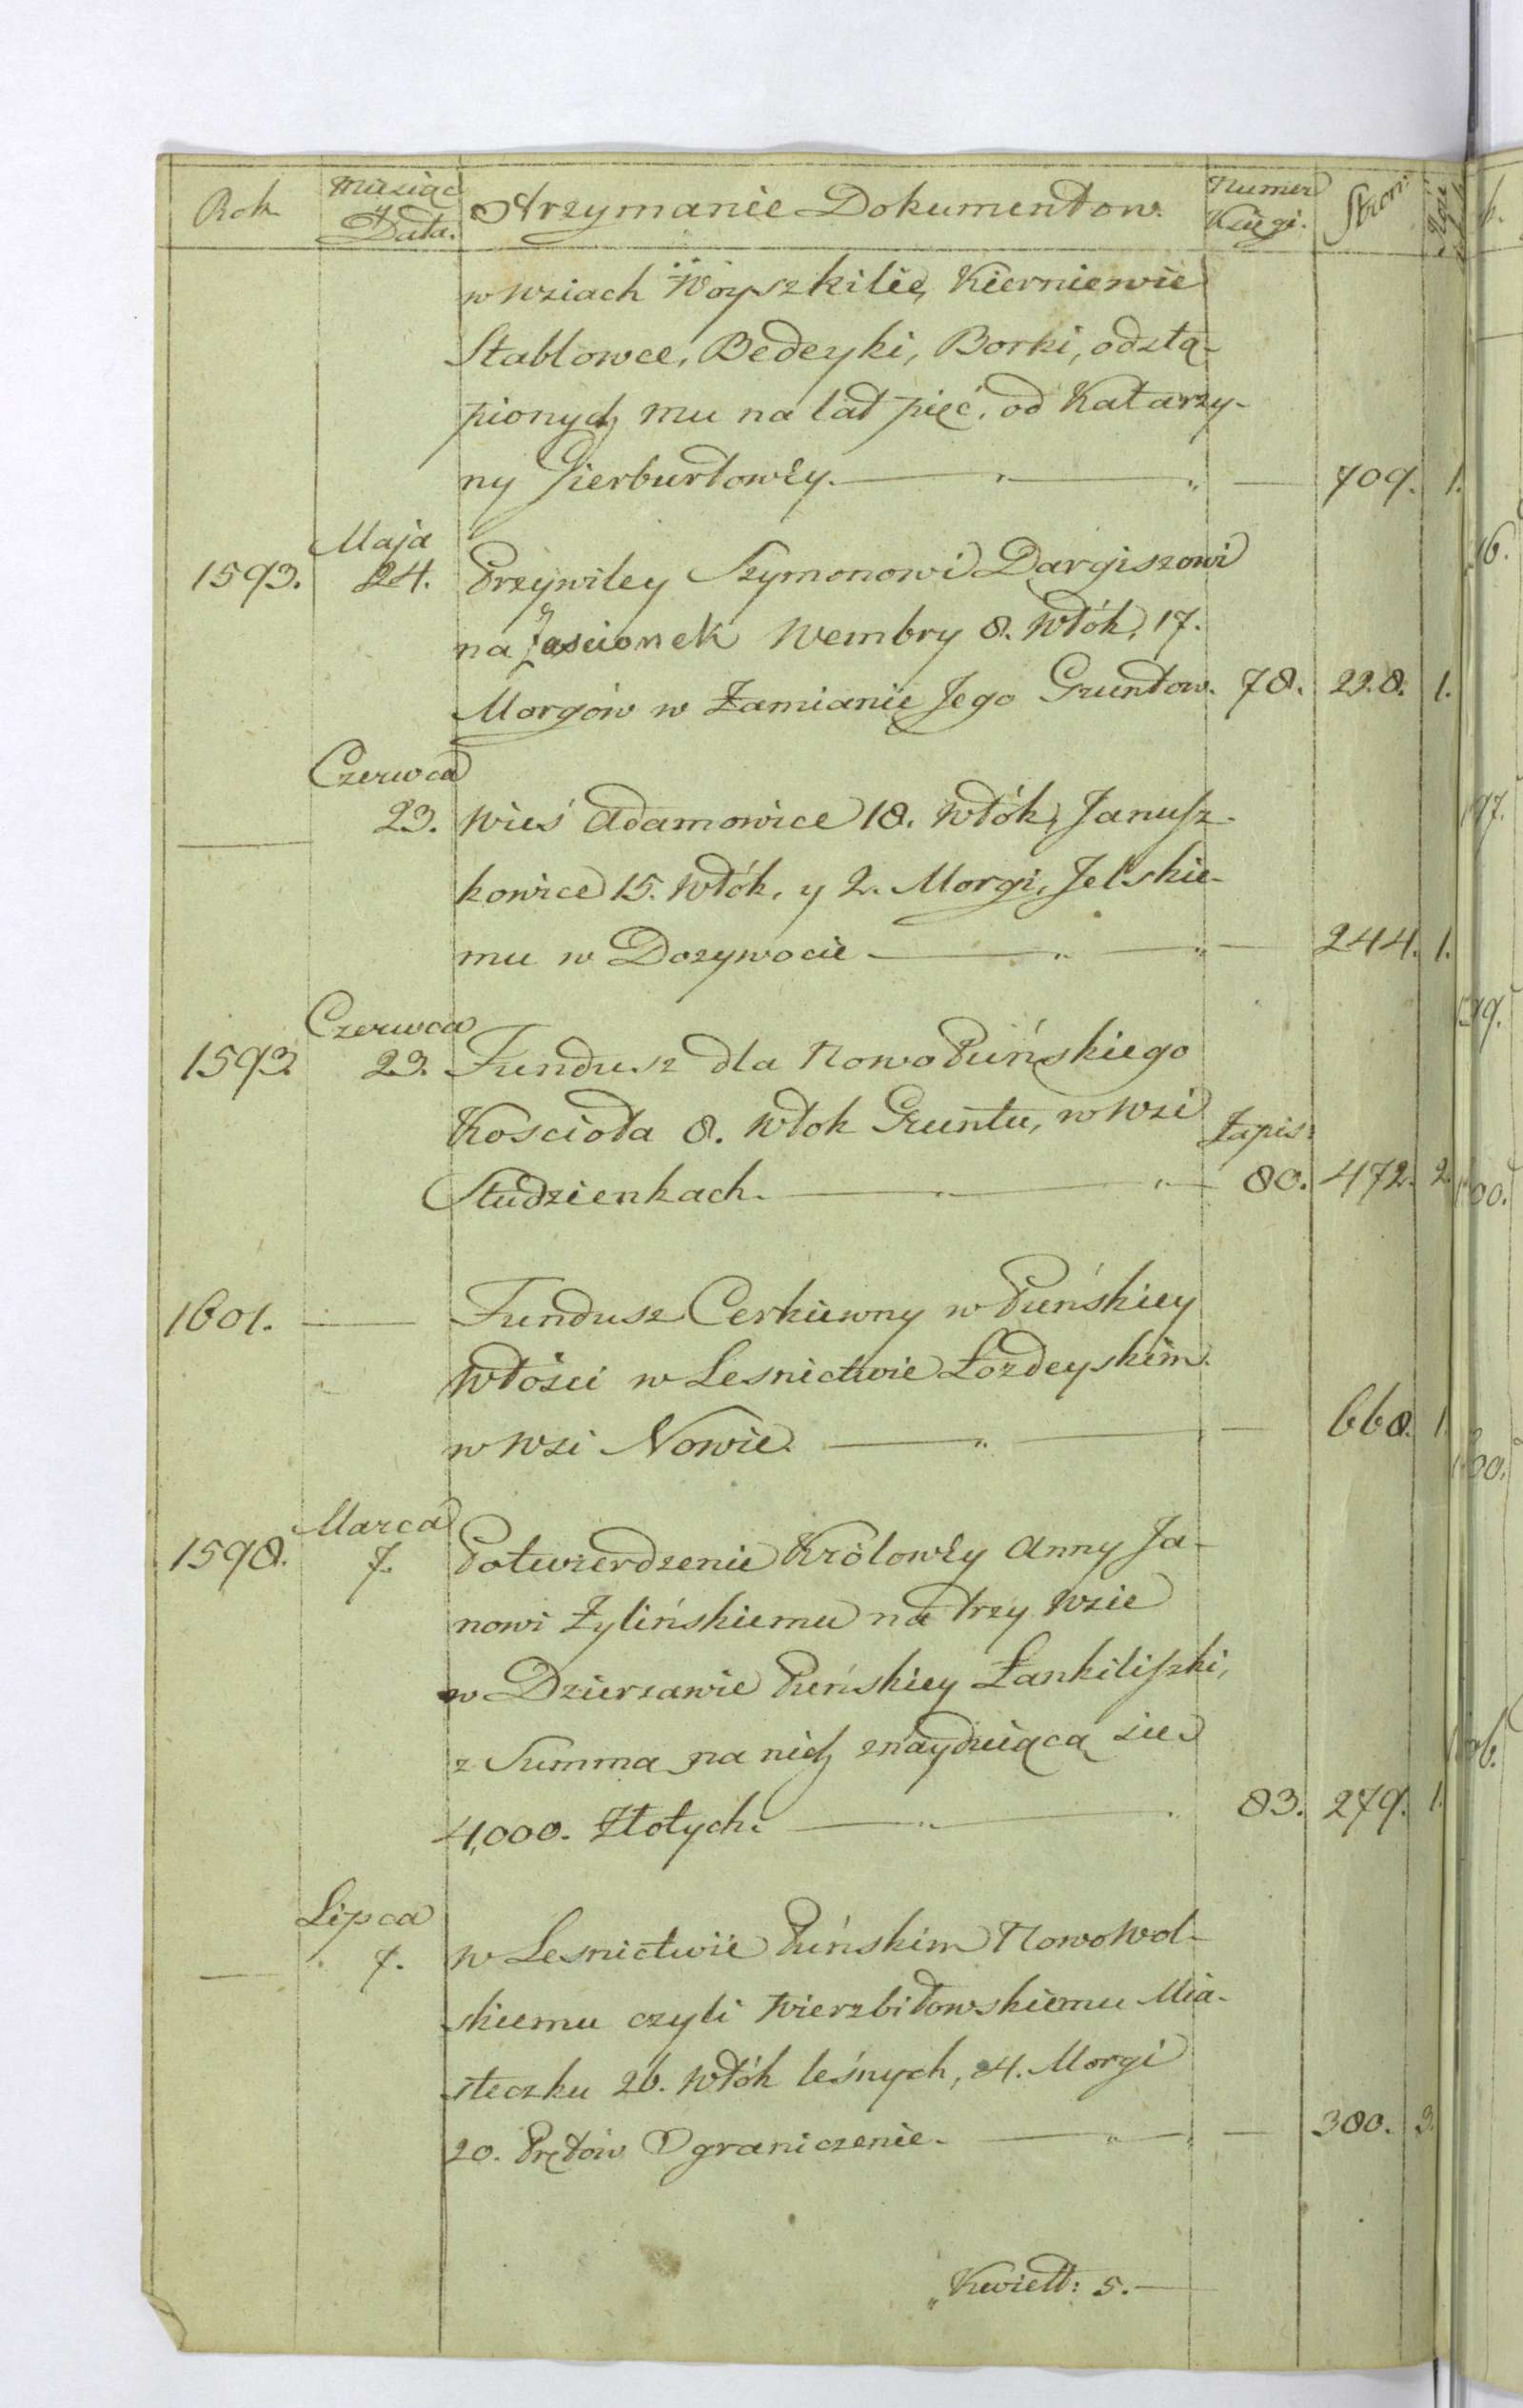 Rok Miesiąc y Data. Otrzymanie Dokumentow. Numer Księgi. Stron:
w wsiach Woyszkilie, Kierniewie
Stablowce, Bedeyki, Borki, odstą-
pionych mu na lat pięć, od Katarzy-
ny Gierburtowży. — „ — „ — 709. 1.
Maja
1593. 24. Przywiley Szymonowi Dargiszowi
na Zascionek Wembry 8. Włók, 17.
Morgów w Zamianie Jego Gruntow. 78. 228. 1.
Czerwca
— 23. Wieś Adamowice 18. Włók, Janusz-
kowice 15. Włók, y 2. Morgi, Jelskie-
mu w Dozywocie — „ — „ — 244. 1.
Czerwca
1593 23. Fundusz dla Nowo Puńskiego
Kosciota 8. Włok Gruntu, w Wsi Zapis:
Studzienkach. — „ — „ — 80. 472. 2.
1601. — Fundusz Cerkiewny w Puńskiey
Włości w Lesnictwie Łozdeyskim
w Wsi Nowie. — „ — 668. 1.
Marca
1598. 7. Potwierdzenie Królowży Anny Ja-
nowi Żylińskiemu na trzy Wsie
w Dzierzawie Puńskiey Łankiliszki,
z Summa na nich znayduiącą sie
4,000. Złotych. — „ — „ 83. 279. 1.
Lipca
— 7. w Lesnictwie Puńskim Nowowol-
skiemu czyli Wierzbiłowskiemu Mia-
steczku 26. Włók leśnych, 24. Morgi
20. Prętów Ograniczenie. — „ — „ — 380. 3.
„Kwiett: 5. —